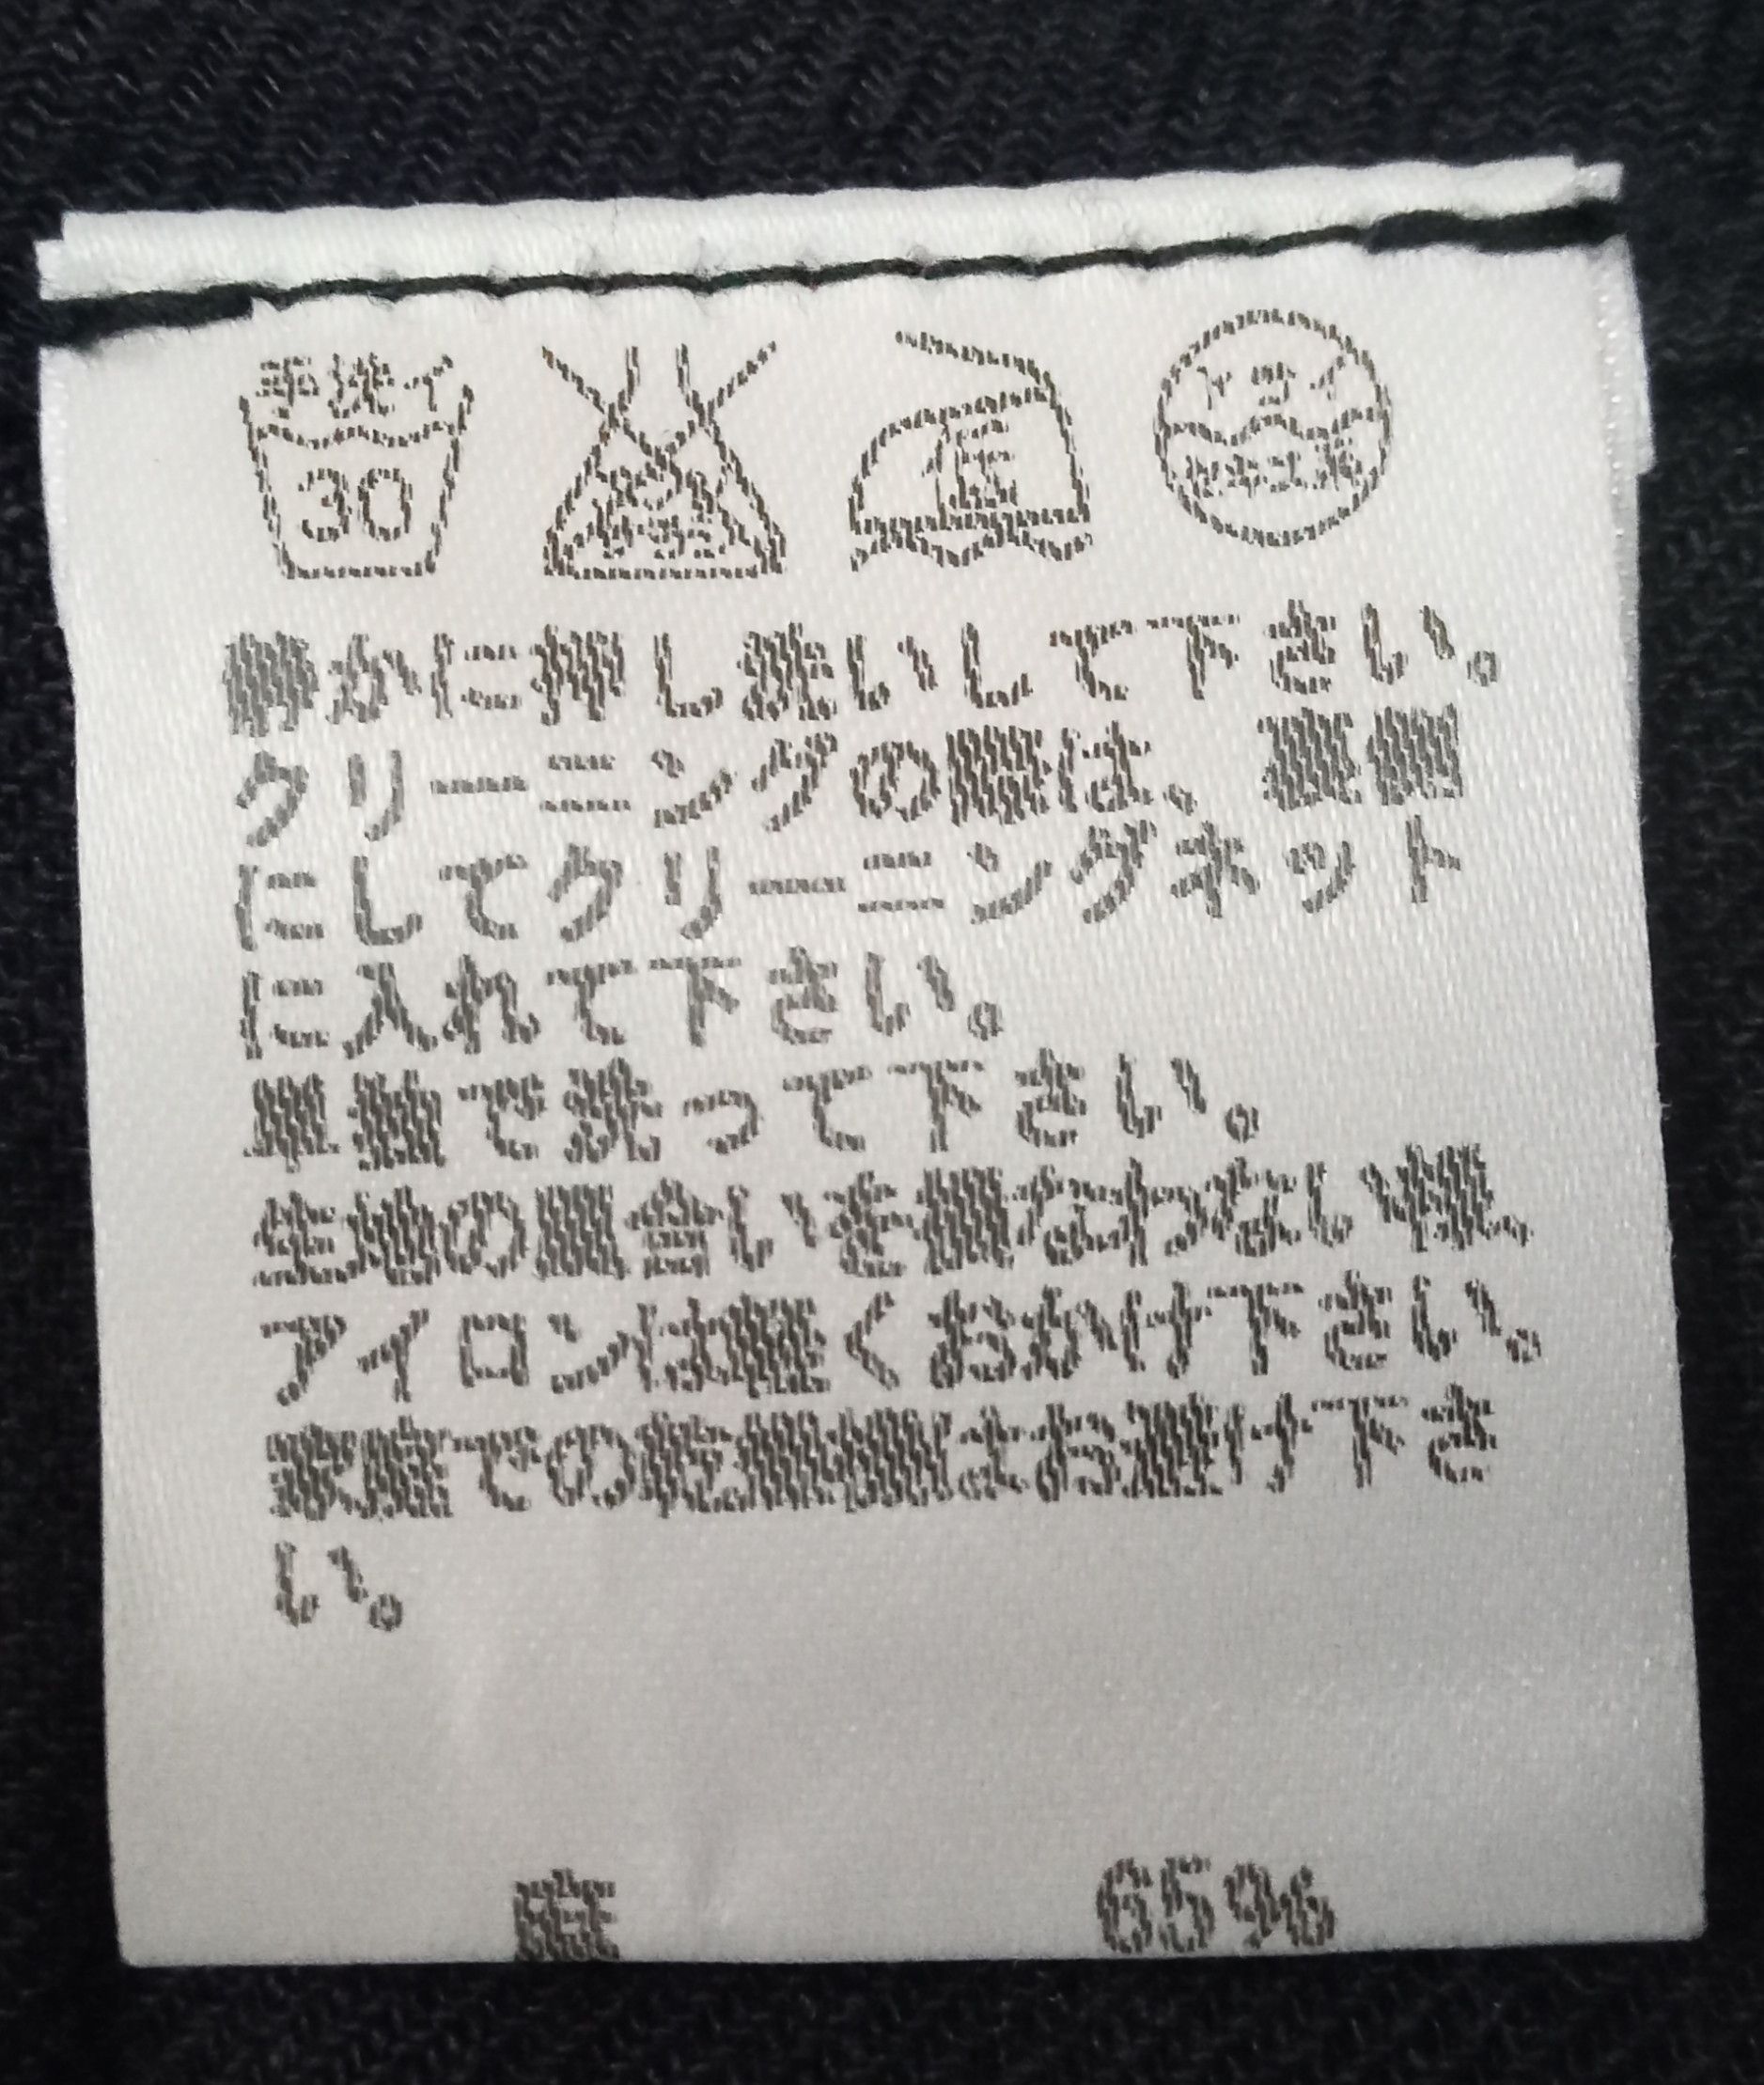 手洗イ
30
エンソ
サラシ
低
ドライ
セキユ系
静かに押し洗いして下さい。
クリーニングの際は、裏側
にしてクリーニングネット
に入れて下さい。
単独で洗って下さい。
生地の風合いを損なわない様、
アイロンは軽くおかけ下さい。
は お避け下さ
い。
65%